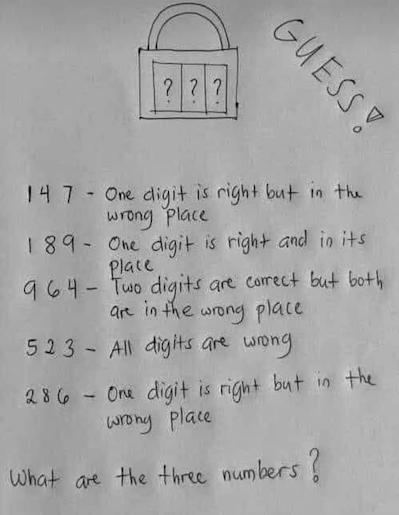 ? ? ?
GUESS!
147 - One digit is right but in the
wrong Place
189 - One digit is right and in its
place
964 - Two digits are correct but both
are in the wrong place
523 - All digits are wrong
286 - One digit is right but in the
wrong place
What are the three numbers?